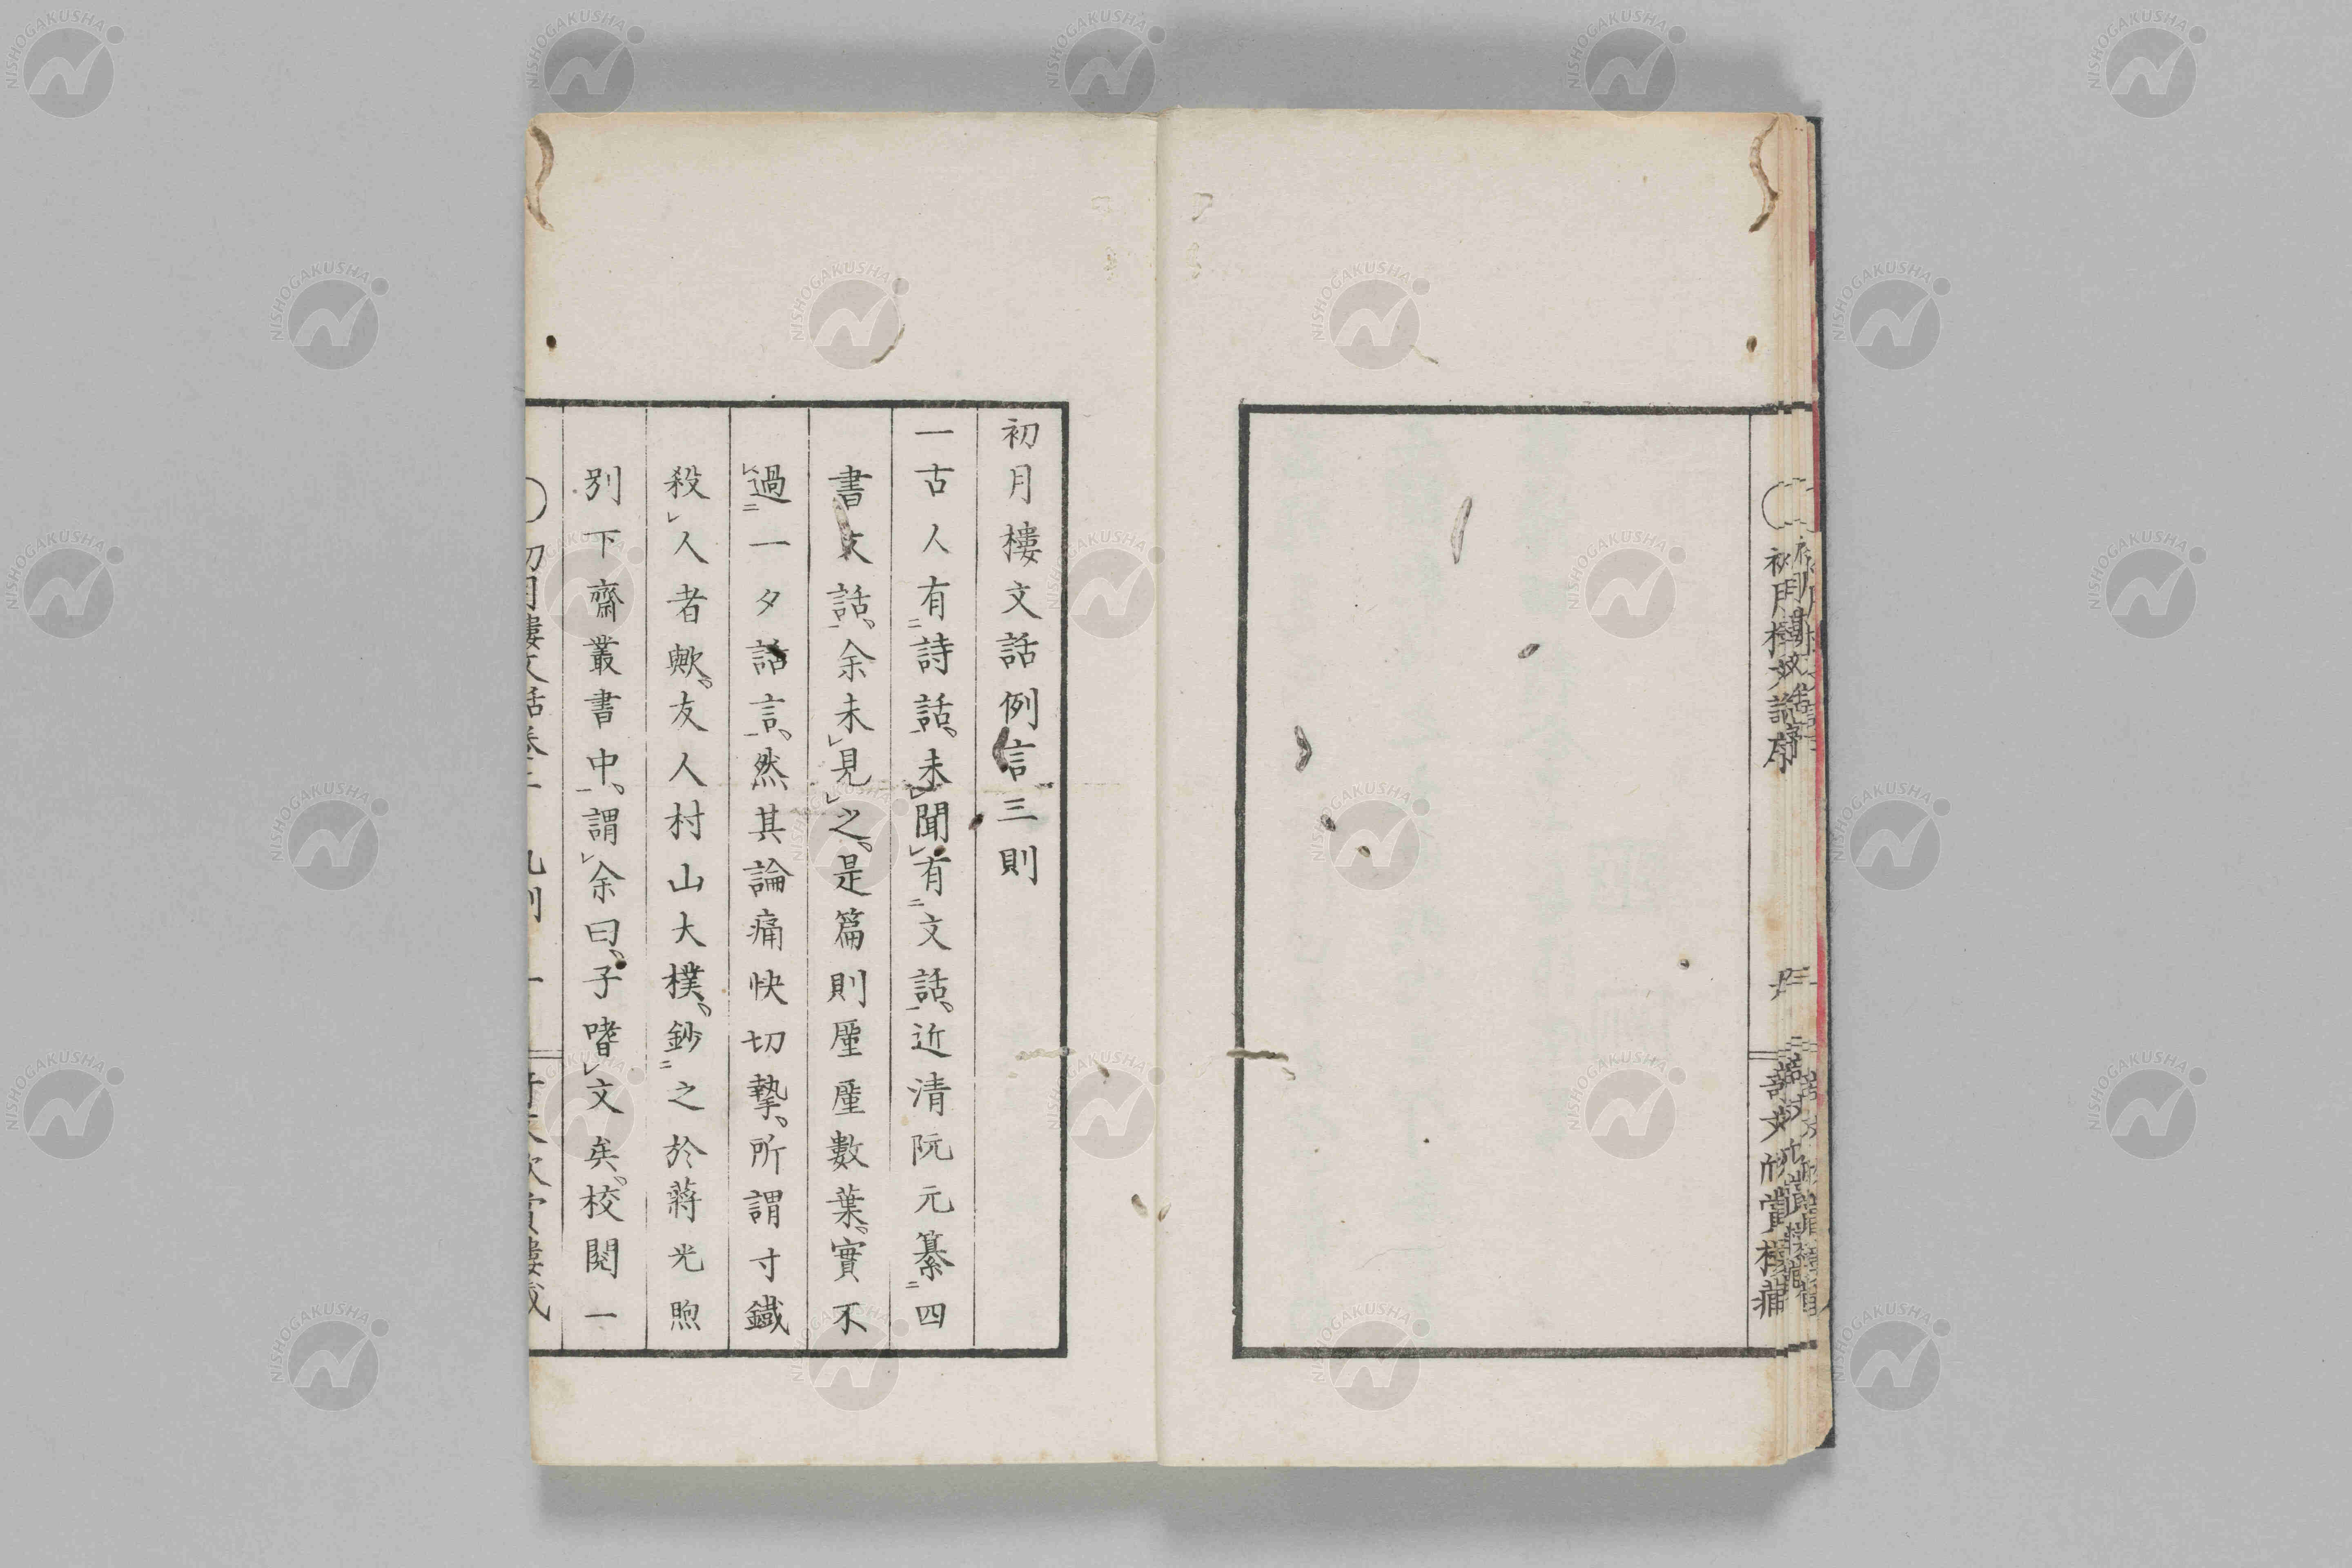 初月樓文話例言三則
一古人有詩話、未聞有文話、近清阮元纂四
書文話、余未見之。是篇則厪厪數葉。實不
過一夕話言、然其論痛快切摯、所謂寸鐵
殺人者歟。友人村山大樸、鈔之於蔣光煦
別下齋叢書中、謂余曰、子嗜文矣。校閱一
NISHOGAKUSHA